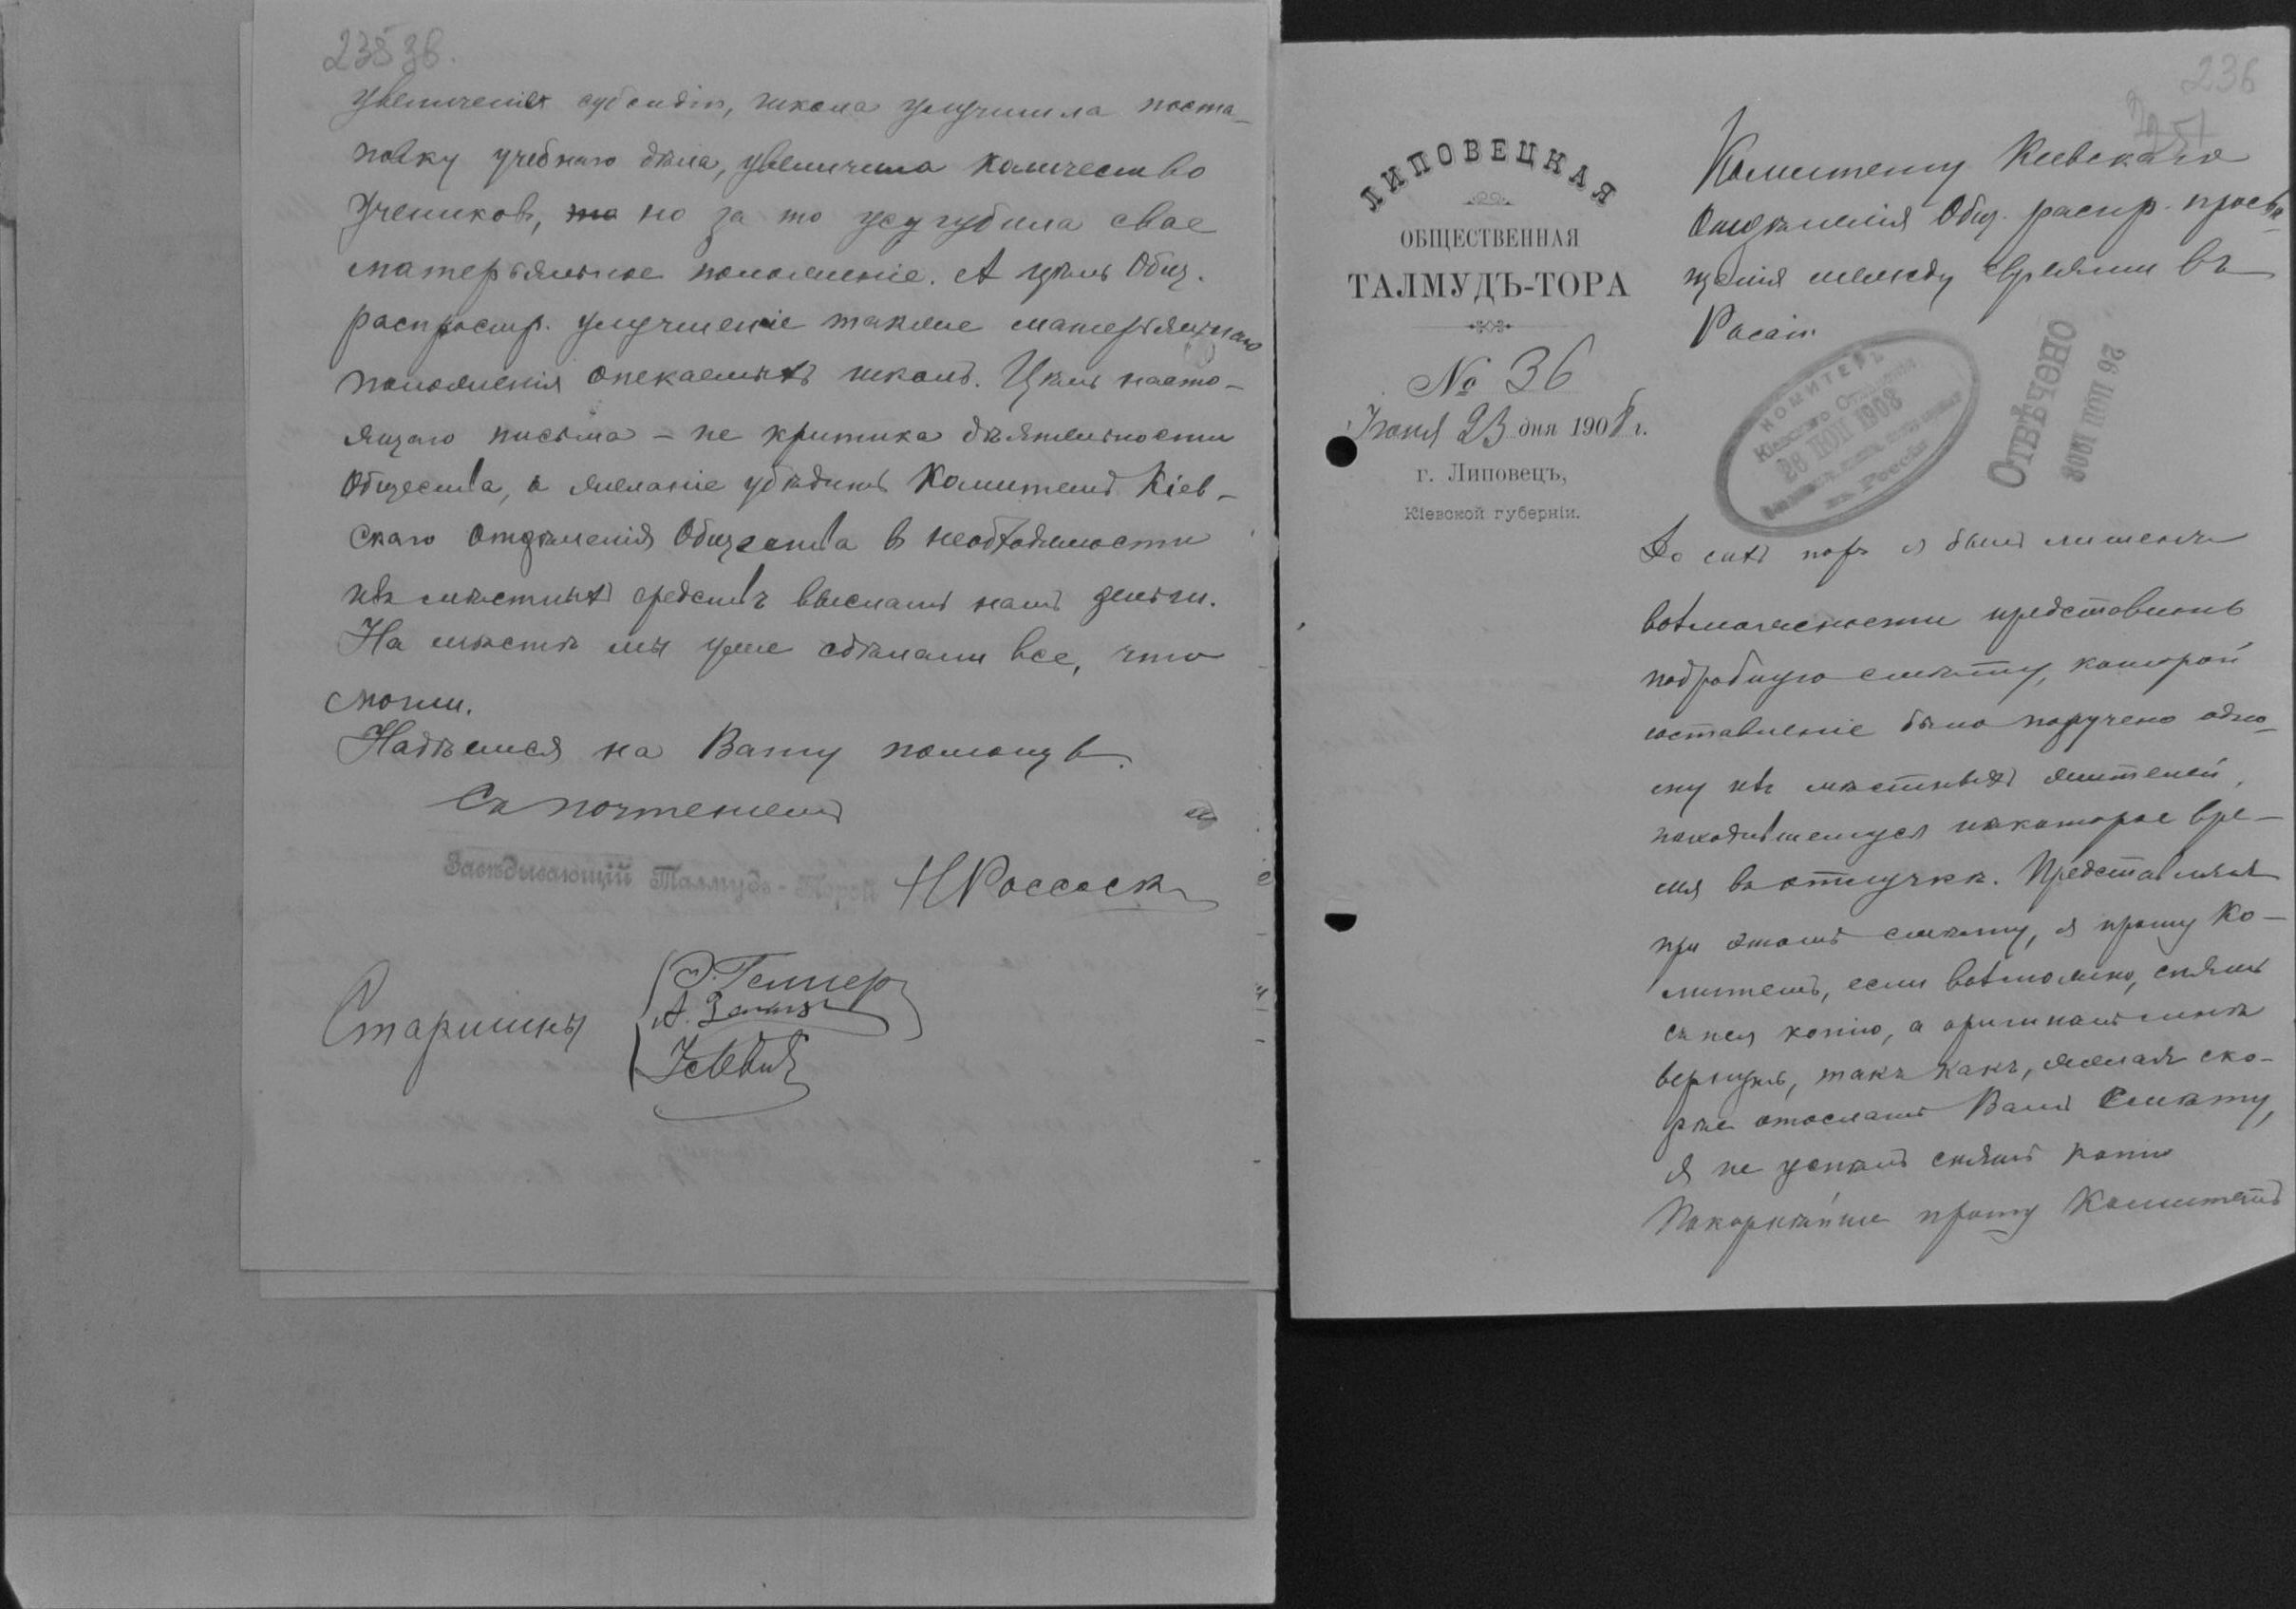 235 зв.
увеличенія субсидіи, школа улучшила поста-
новку учебнаго дѣла, увеличила количество
учениковъ, но за то усугубила свое
матерьяльное положеніе. А цѣль Общ.
распростр. улучшеніе также матерьяльнаго
положенія опекаемыхъ школъ. Цѣль насто-
ящаго письма – не критика дѣятельности
Общества, а желаніе убѣдить Комитетъ Кіев-
скаго Отдѣленія Общества в необходимости
изъ мѣстныхъ средствъ выслать намъ деньги.
На мѣстѣ мы уже сдѣлали все, что
могли.
Надѣемся на Вашу помощь.
Съ почтеніемъ
Завѣдывающій Талмудъ-Торой Н Россоск
Старшины
236
ЛИПОВЕЦКАЯ
ОБЩЕСТВЕННАЯ
ТАЛМУДЪ-ТОРА
№ 36
Іюня 23 дня 1908 г.
г. Липовецъ,
Кіевской губерніи.
Комитету Кіевскаго
Отдѣленія Общ. распр. просвѣ-
щенія между евреями въ
Россіи
КОМИТЕТЪ
Кіевскаго Отдѣленія
26 ІЮН 1908
въ Россіи
ОТВѢЧЕНО
26 ІЮН 1908
До сихъ поръ я былъ лишенъ
возможности представить
подробную смѣту, которой
составленіе было поручено одно-
му изъ мѣстныхъ жителей,
находившемуся нѣкоторое вре-
мя въ отлучкѣ. Представляя
при этомъ смѣту, я прошу Ко-
митетъ, если возможно, снять
съ нея копію, а оригиналъ мнѣ
вернуть, такъ какъ, желая ско-
рѣе отослать Вамъ Смѣту,
я не успѣлъ снять копію
Покорнѣйше прошу Комитетъ